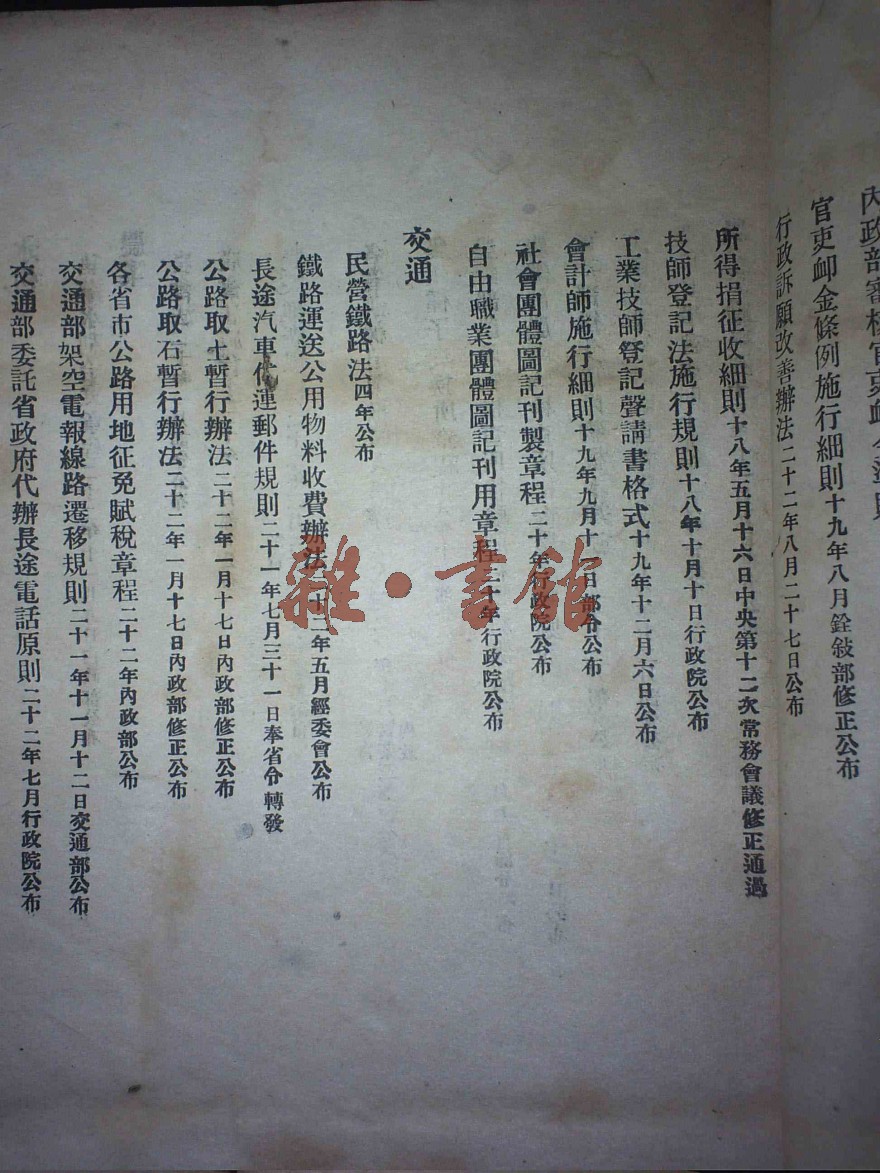 內政部審核官吏卹金準則
官吏卹金條例施行細則十九年八月銓敍部修正公布
行政訴願改善辦法二十二年八月二十七日公布
所得捐征收細則十八年五月十六日中央第十二次常務會議修正通過
技師登記法施行規則十八年十月十日行政院公布
工業技師登記聲請書格式十九年十二月六日公布
會計師施行細則十九年九月十一日部令公布
社會團體圖記刊製章程二十年行政院公布
自由職業團體圖記刊用章程二十年行政院公布
交通
民營鐵路法四年公布
鐵路運送公用物料收費辦法二十二年五月經委會公布
長途汽車代運郵件規則二十一年七月三十一日奉省令轉發
公路取土暫行辦法二十二年一月十七日內政部修正公布
公路取石暫行辦法二十二年一月十七日內政部修正公布
各省市公路用地征免賦稅章程二十二年內政部公布
交通部架空電報線路遷移規則二十一年十一月十二日交通部公布
交通部委託省政府代辦長途電話原則二十二年七月行政院公布
雜·書館